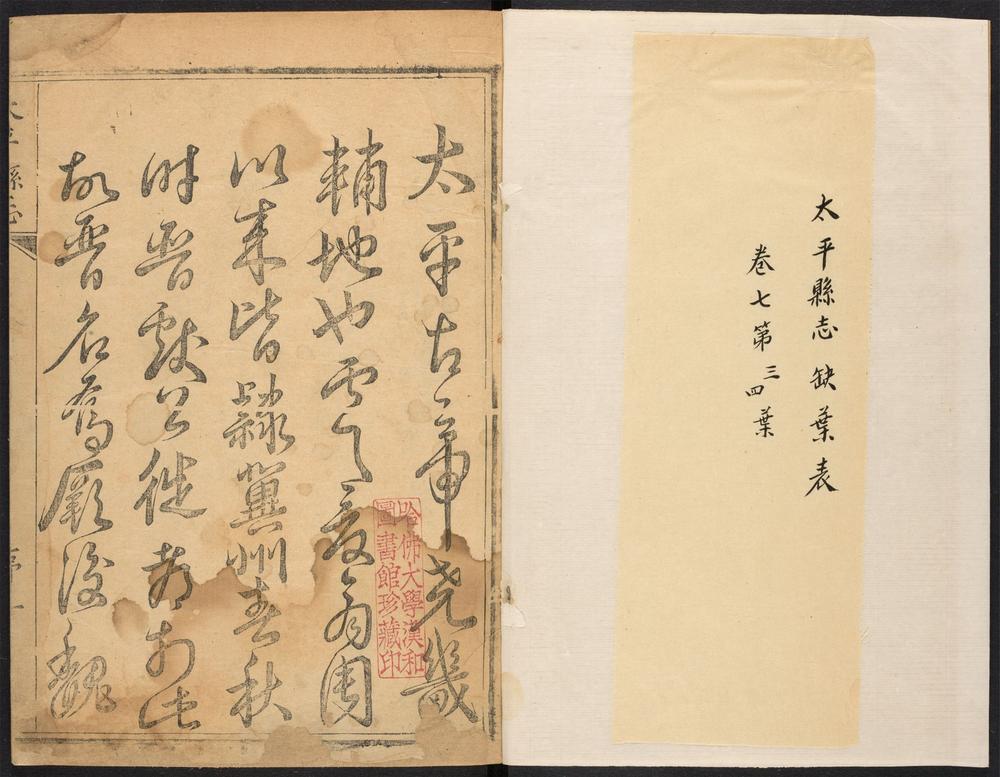 太平縣志缺葉表
卷七第三四葉
太平古帝堯畿
輔地也虞夏商周
以來皆隸冀州春秋
時晉獻公徙都於此
故晉名焉厥後魏
哈佛大學漢和
圖書館珍藏印
太平縣志
一